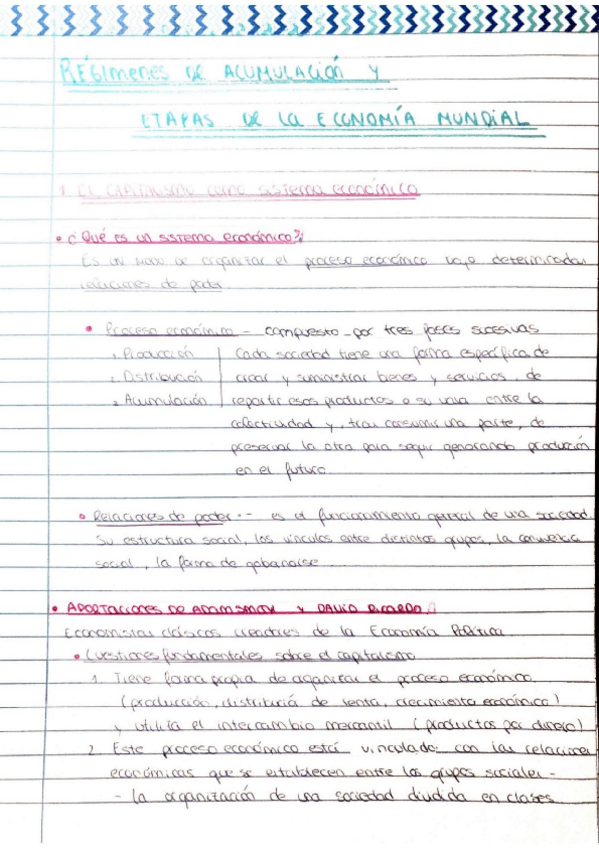 RÉGimenes DE ACUMULACIÓN Y
ETAPAS DE LA ECONOMÍA MUNDIAL
1. EL CAPITALISMO como sistema económico
• ¿Qué es un sistema económico?
Es un modo de organizar el proceso económico bajo determinadas
relaciones de poder.
• Proceso económico - compuesto por tres fases sucesivas
1. Producción | Cada sociedad tiene una forma específica de
. Distribución | crear y suministrar bienes y servicios, de
Acumulación | repartir esos productos o su valor entre la
colectividad y, tras consumir una parte, de
preservar la otra para seguir generando producción
en el futuro
• Relaciones de poder.- es el funcionamiento general de una sociedad.
Su estructura social, los vínculos entre distintos grupos, la convivencia
social, la forma de gobernarse
• APORTACIONES DE ADAM SMITH Y DAVID RICARDO.
Economistas clásicos creadores de la Economía Política
• Cuestiones fundamentales sobre el capitalismo
1. Tiene forma propia de organizar el proceso económico
(producción, distribución de renta, crecimiento económico)
y utiliza el intercambio mercantil (productos por dinero)
2. Este proceso económico está vinculado con las relaciones
económicas que se establecen entre los grupos sociales -
- la organización de una sociedad dividida en clases